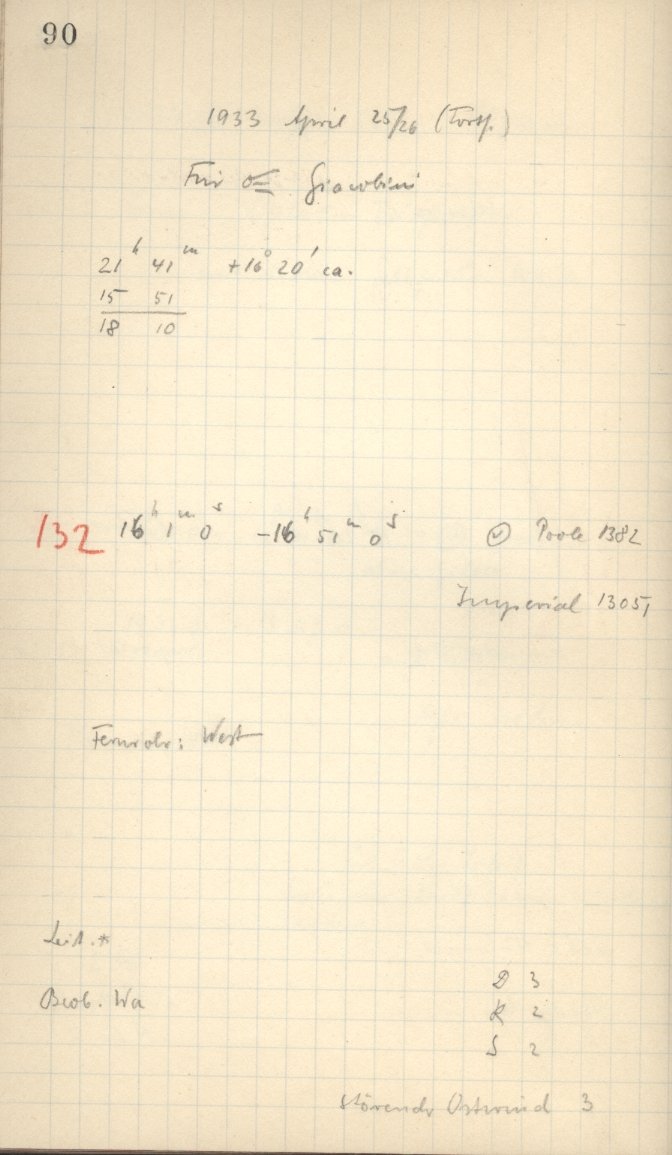 90
1933 April 25/26 (Forts.)
Für Giacobini
21ʰ 41ᵐ +16° 20′ ca.
15 51
18 10
132 16ʰ 1ᵐ 0ˢ -16ʰ 51ᵐ 0ˢ Poole 1382
Imperial 13051
Fernrohr: West
Leit. *
D 3
Beob. Wa
R 2
S 2
störender Ostwind 3